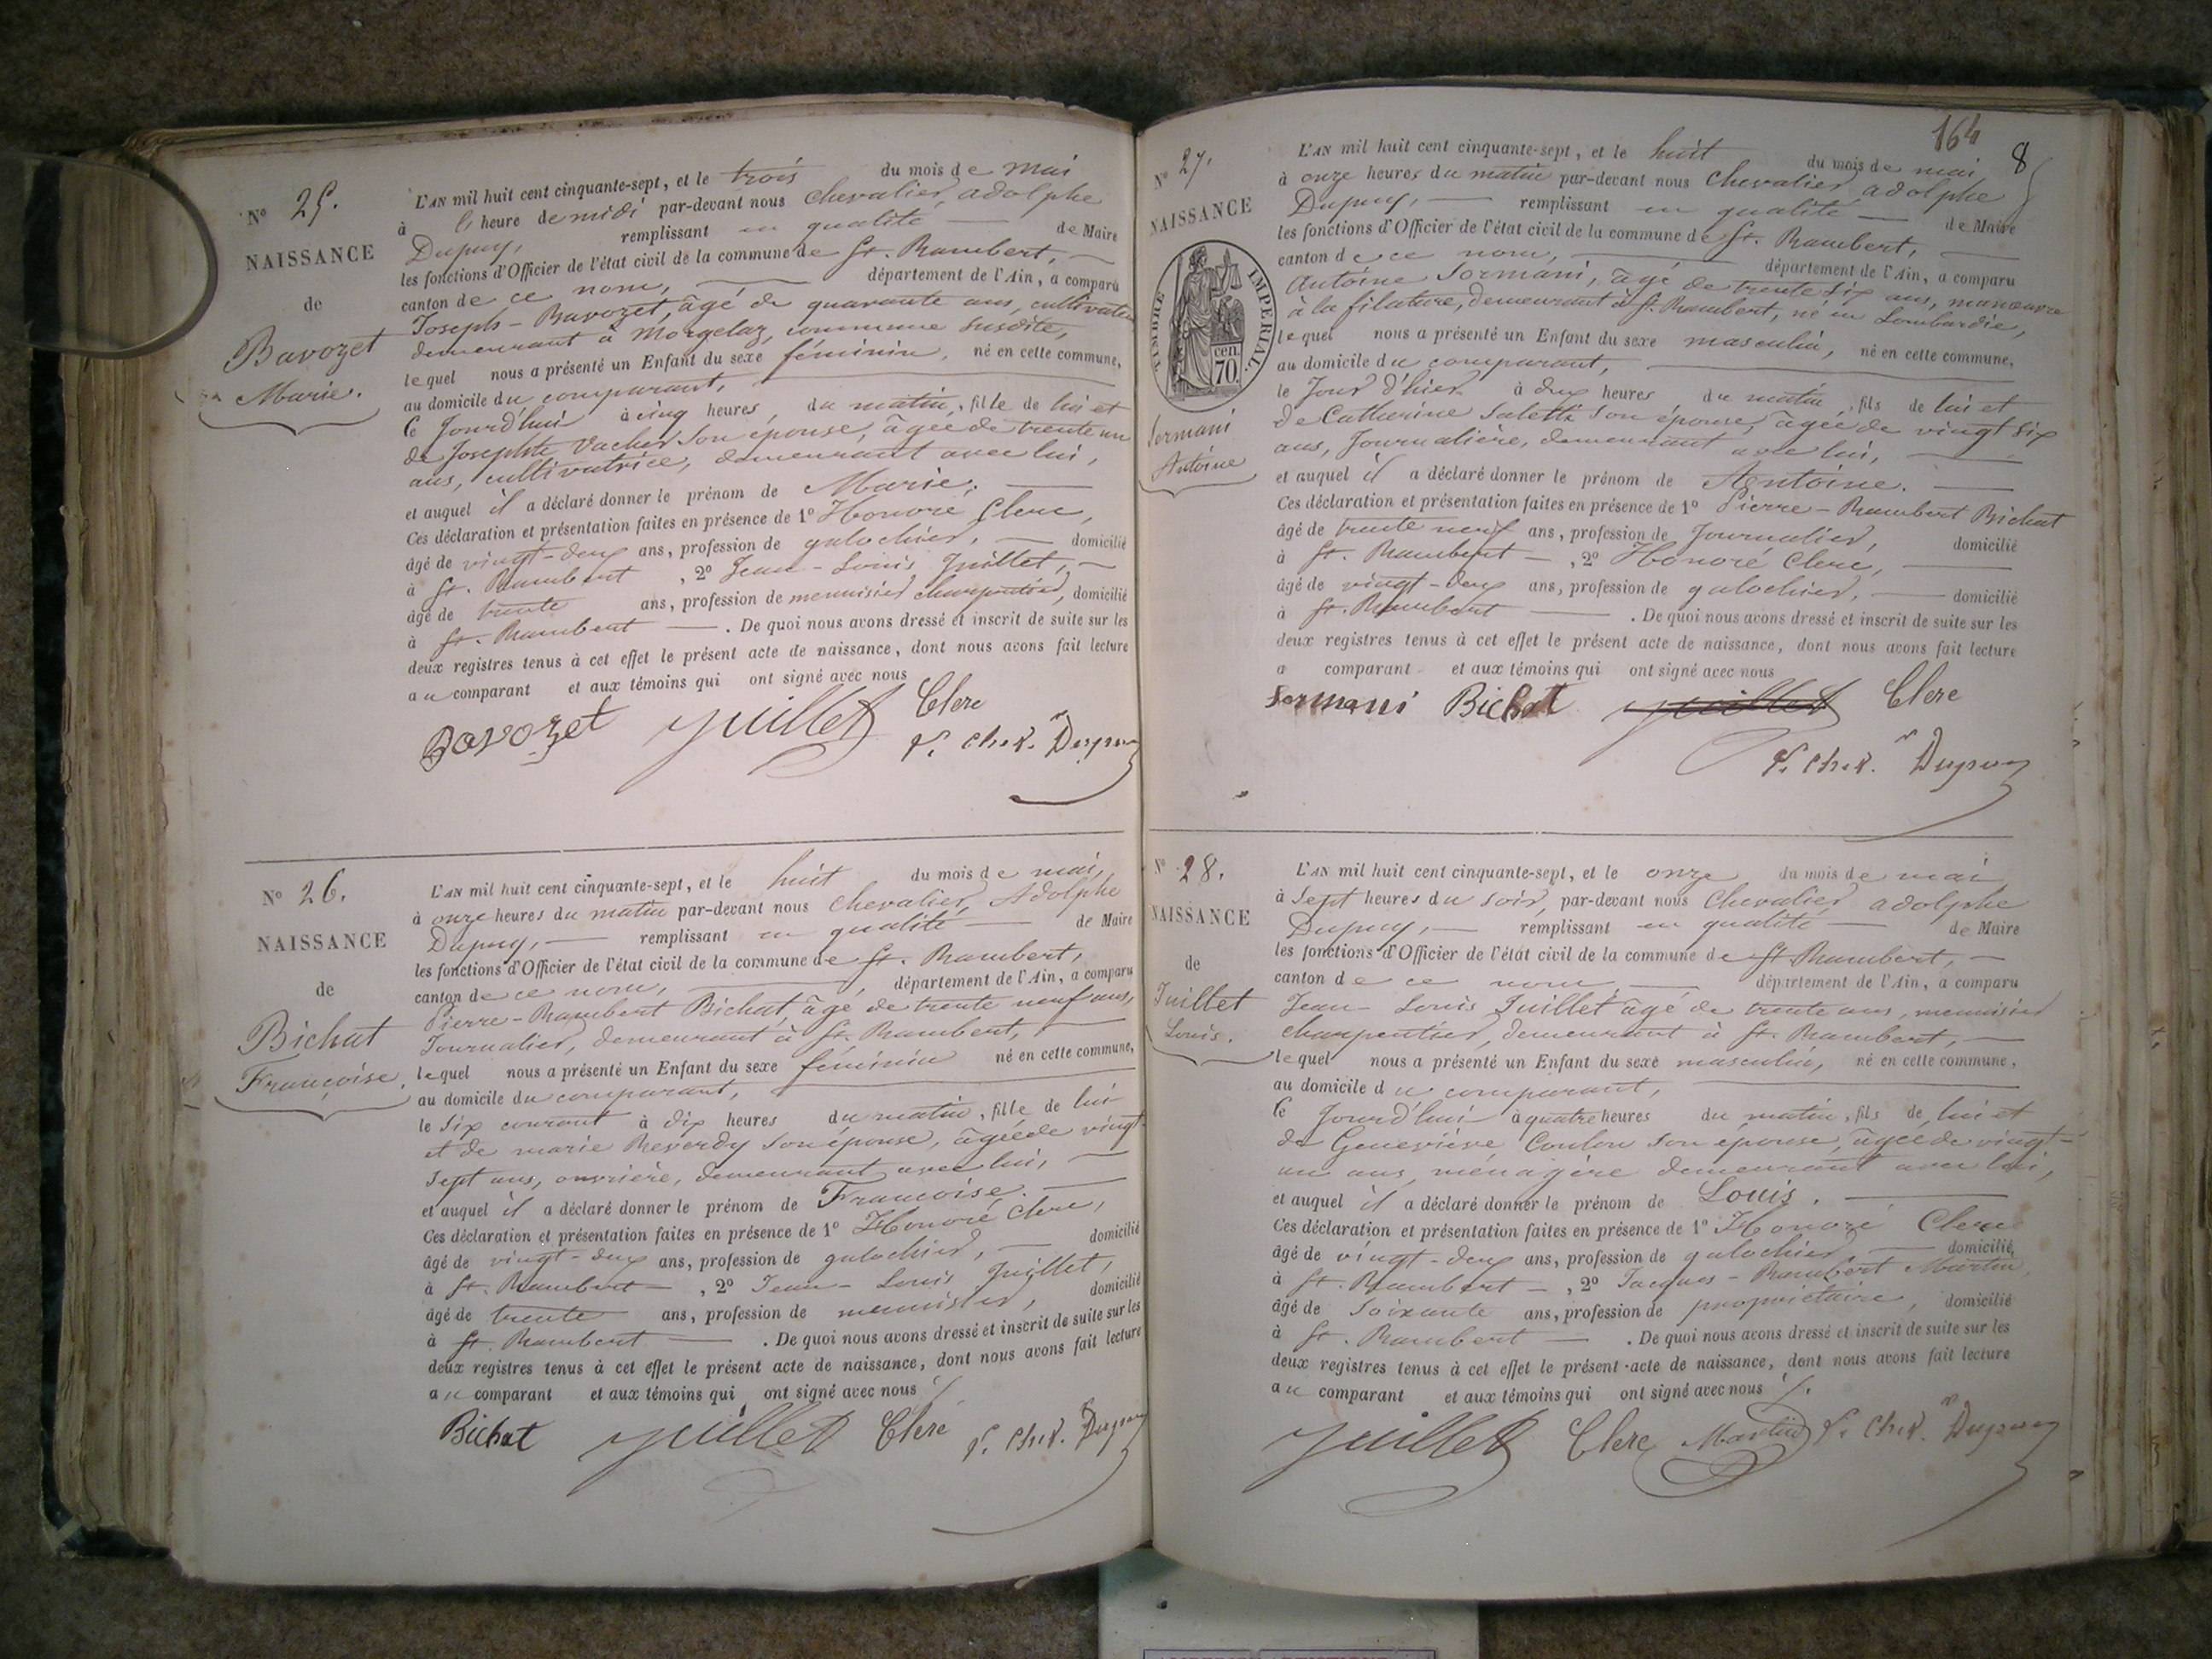 N° 25.
NAISSANCE
de
Bavozet
Marie.
L'AN mil huit cent cinquante-sept, et le trois du mois de mai
à l' heure de midi par-devant nous Chevalier, adolphe
Dupuy, remplissant en qualité de Maire
les fonctions d'Officier de l'état civil de la commune de St. Rambert,
canton de ce nom, département de l'Ain, a comparu
Joseph-Bavozet, âgé de quarante ans, cultivateur
demeurant à Morgelaz, commune susdite,
lequel nous a présenté un Enfant du sexe féminin, né en cette commune,
au domicile du comparant,
le jourd'hui à cinq heures, du matin, fille de lui et
de Josephte Vacher son épouse, âgée de trente un
ans, cultivatrice, demeurant avec lui,
et auquel il a déclaré donner le prénom de Marie.
Ces déclaration et présentation faites en présence de 1° Honoré Clerc,
âgé de vingt-deux ans, profession de galochier, domicilié
à St. Rambert, 2° Jean-Louis Juillet,
âgé de trente ans, profession de menuisier charpentier, domicilié
à St. Rambert. De quoi nous avons dressé et inscrit de suite sur les
deux registres tenus à cet effet le présent acte de naissance, dont nous avons fait lecture
au comparant et aux témoins qui ont signé avec nous
Bavozet Juillet Clerc
Dupuy
N° 26.
NAISSANCE
de
Bichat
Françoise.
L'AN mil huit cent cinquante-sept, et le huit du mois de mai,
à onze heures du matin par-devant nous Chevalier, Adolphe
Dupuy, remplissant en qualité de Maire
les fonctions d'Officier de l'état civil de la commune de St. Rambert,
canton de ce nom, département de l'Ain, a comparu
Pierre-Rambert Bichat, âgé de trente neuf ans,
Journalier, demeurant à St. Rambert,
lequel nous a présenté un Enfant du sexe féminin né en cette commune,
au domicile du comparant,
le six courant à dix heures du matin, fille de lui
et de marie Reverdy son épouse, âgée de vingt
sept ans, ouvrière, demeurant avec lui,
et auquel il a déclaré donner le prénom de Françoise.
Ces déclaration et présentation faites en présence de 1° Honoré Clerc,
âgé de vingt-deux ans, profession de galochier, domicilié
à St. Rambert, 2° Jean-Louis Juillet,
âgé de trente ans, profession de menuisier, domicilié
à St. Rambert. De quoi nous avons dressé et inscrit de suite sur les
deux registres tenus à cet effet le présent acte de naissance, dont nous avons fait lecture
au comparant et aux témoins qui ont signé avec nous
Bichat Juillet Clerc Dupuy
164 8
N° 27.
NAISSANCE
TIMBRE IMPERIAL.
70 cen.
Sormani
Antoine
L'AN mil huit cent cinquante-sept, et le huit du mois de mai
à onze heures du matin par-devant nous Chevalier, adolphe
Dupuy, remplissant en qualité de Maire
les fonctions d'Officier de l'état civil de la commune de St. Rambert,
canton de ce nom, département de l'Ain, a comparu
Antoine Sormani, âgé de trente six ans, manœuvre
à la filature, demeurant à St. Rambert, né en Lombardie,
lequel nous a présenté un Enfant du sexe masculin, né en cette commune,
au domicile du comparant,
le jour d'hier à deux heures, du matin, fils de lui et
de Catherine Saletti son épouse, âgée de vingt six
ans, Journalière, demeurant avec lui,
et auquel il a déclaré donner le prénom de Antoine.
Ces déclaration et présentation faites en présence de 1° Pierre-Rambert Bichat
âgé de trente neuf ans, profession de Journalier, domicilié
à St. Rambert, 2° Honoré Clerc,
âgé de vingt-deux ans, profession de galochier, domicilié
à St. Rambert. De quoi nous avons dressé et inscrit de suite sur les
deux registres tenus à cet effet le présent acte de naissance, dont nous avons fait lecture
a comparant et aux témoins qui ont signé avec nous
Sormani Bichat Juillet Clerc
Dupuy
N° 28.
NAISSANCE
de
Juillet
Louis.
L'AN mil huit cent cinquante-sept, et le onze du mois de mai
à sept heures du soir, par-devant nous Chevalier adolphe
Dupuy, remplissant en qualité de Maire
les fonctions d'Officier de l'état civil de la commune de St Rambert,
canton de ce nom, département de l'Ain, a comparu
Jean Louis Juillet âgé de trente ans, menuisier
charpentier, demeurant à St. Rambert,
lequel nous a présenté un Enfant du sexe masculin, né en cette commune,
au domicile du comparant,
le jourd'hui à quatre heures du matin, fils de lui et
de Geneviève Coulon son épouse, âgée de vingt-
un ans, ménagère demeurant avec lui,
et auquel il a déclaré donner le prénom de Louis.
Ces déclaration et présentation faites en présence de 1° Honoré Clerc
âgé de vingt-deux ans, profession de galochier, domicilié
à St. Rambert, 2° Jacques-Rambert Martin
âgé de soixante ans, profession de propriétaire, domicilié
à St. Rambert. De quoi nous avons dressé et inscrit de suite sur les
deux registres tenus à cet effet le présent acte de naissance, dont nous avons fait lecture
au comparant et aux témoins qui ont signé avec nous
Juillet Clerc Martin Dupuy